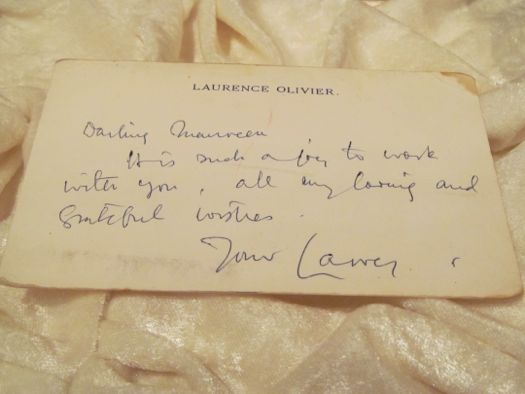 LAURENCE OLIVIER.
Darling Maureen
It is such a joy to work
with you, all my loving and
grateful wishes.
Your Larry.